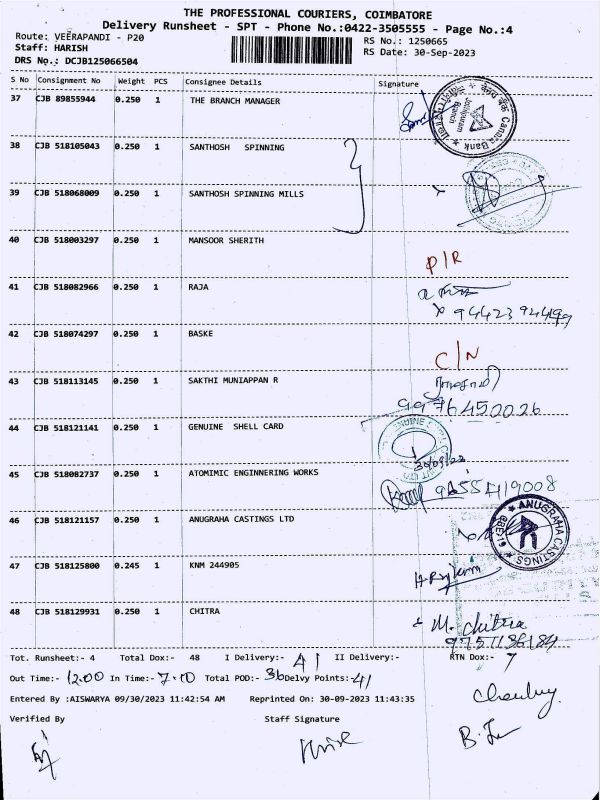 THE PROFESSIONAL COURIERS, COIMBATORE
Delivery Runsheet - SPT - Phone No.:0422-3505555 - Page No.:4
Route: VEERAPANDI - P20
RS No.: 1250665
Staff: HARISH
RS Date: 30-Sep-2023
DRS No.: DCJB125066504
S No Consignment No Weight PCS Consignee Details Signature
37 CJB 89855944 0.250 1 THE BRANCH MANAGER
Canara Bank
38 CJB 518105043 0.250 1 SANTHOSH SPINNING
39 CJB 518068009 0.250 1 SANTHOSH SPINNING MILLS
40 CJB 518003297 0.250 1 MANSOOR SHERITH
P/R
41 CJB 518082966 0.250 1 RAJA
42 CJB 518074297 0.250 1 BASKE
C/N
43 CJB 518113145 0.250 1 SAKTHI MUNIAPPAN R
9976450026
44 CJB 518121141 0.250 1 GENUINE SHELL CARD
45 CJB 518082737 0.250 1 ATOMIMIC ENGINNERING WORKS
46 CJB 518121157 0.250 1 ANUGRAHA CASTINGS LTD
ANUGRAHA CASTINGS
47 CJB 518125800 0.245 1 KNM 244905
48 CJB 518129931 0.250 1 CHITRA
M. chitra
9751136184
Tot. Runsheet:- 4 Total Dox:- 48 I Delivery:- 41 II Delivery:- RTN Dox:- 7
Out Time:- 12.00 In Time:- 7.10 Total POD:- 36 Delvy Points:- 41
Entered By :AISWARYA 09/30/2023 11:42:54 AM Reprinted On: 30-09-2023 11:43:35
Verified By Staff Signature